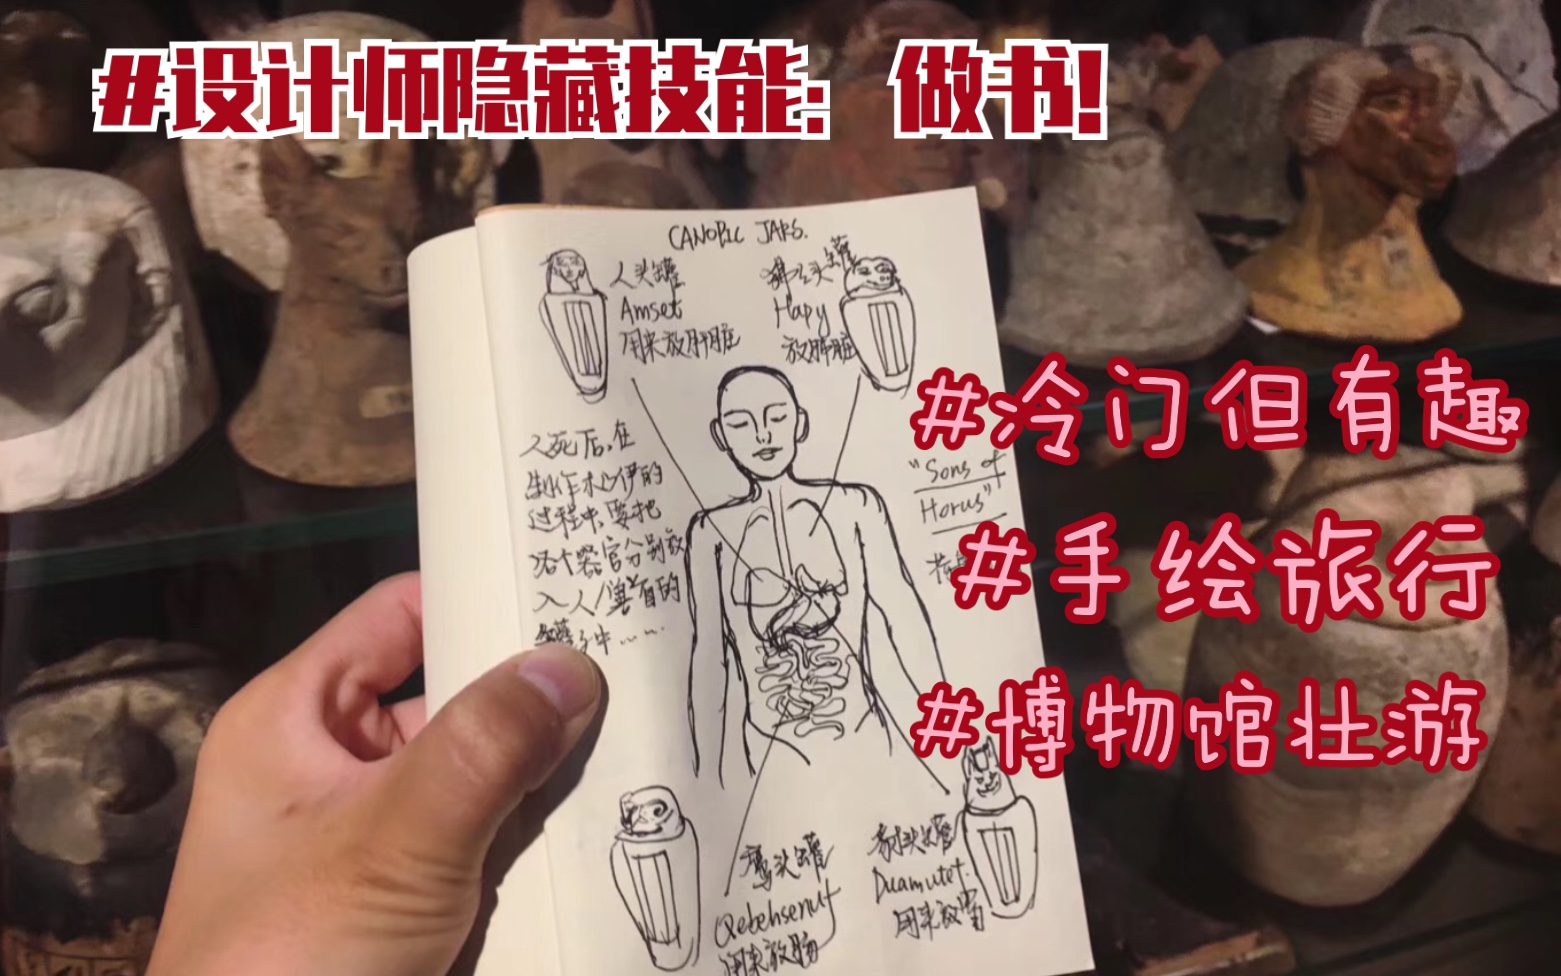 #设计师隐藏技能：做书！
CANOPIC JARS.
人头罐
Amset
用来放肝脏
狒狒头罐
Hapy
放肺脏
人死后，在
制作木乃伊的
过程中，要把
各个器官分别放
入人/兽首的
罐子中……
"Sons of
Horus"
#冷门但有趣
#手绘旅行
#博物馆壮游
鹰头罐
Qebehsenuf
用来放肠
豺头罐
Duamutef.
用来放胃